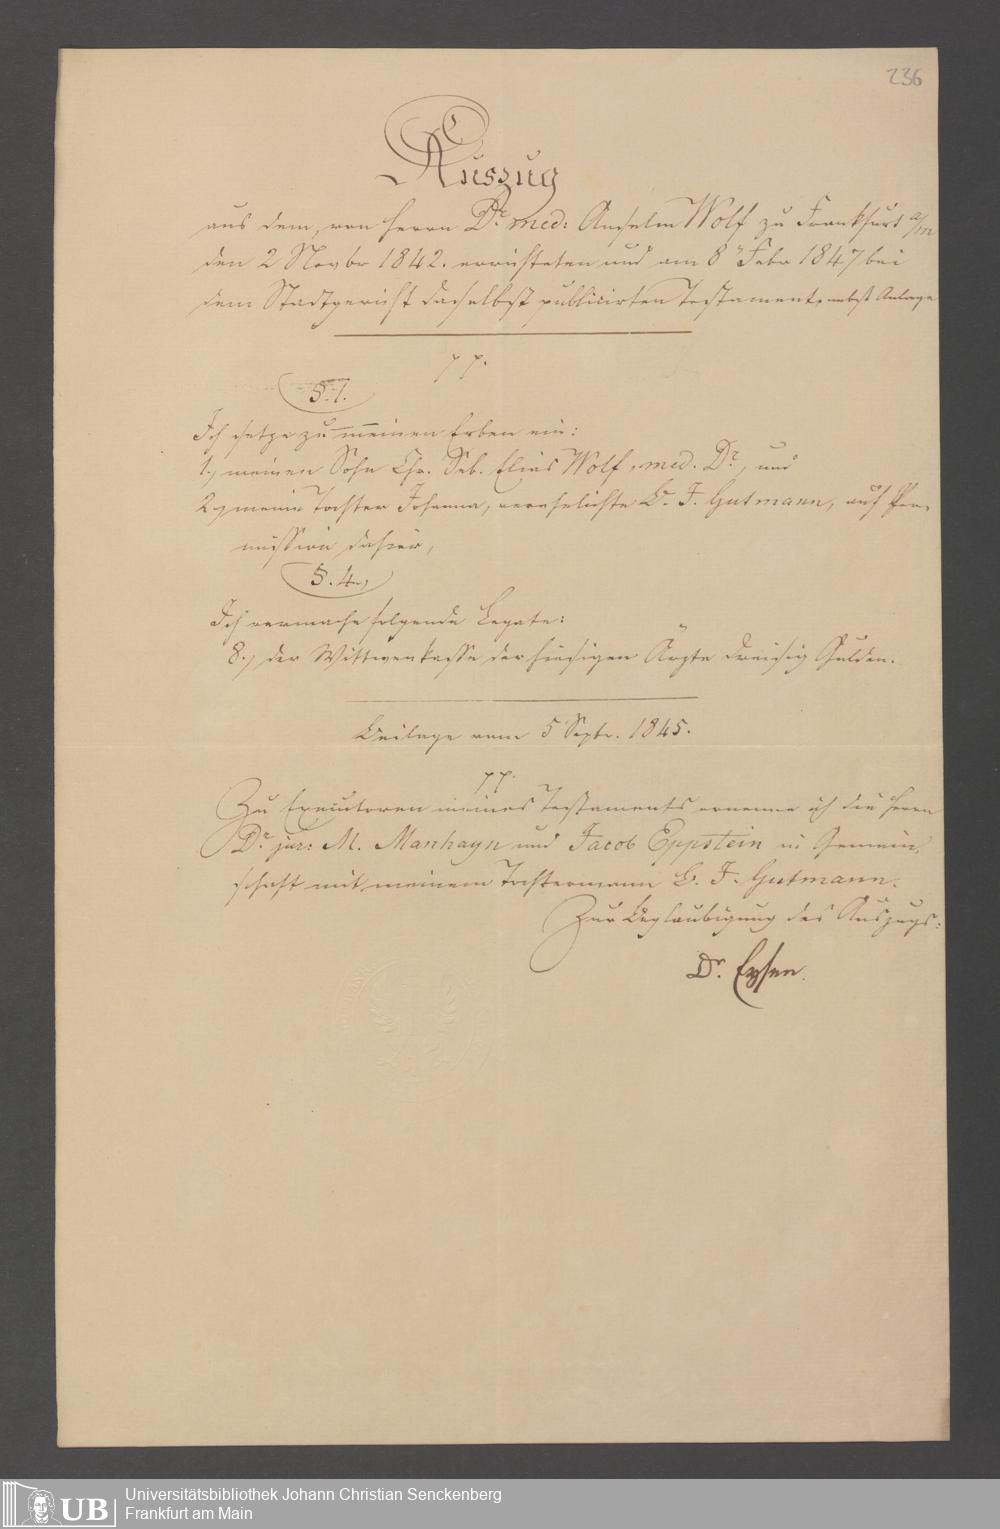 236
Auszug
aus dem, von Herrn Dr. med: Anselm Wolf zu Frankfurt a/m
den 2 Novbr 1842. errichteten und am 8n Febr 1847 bei
dem Stadtgericht daselbst publicirten Testament, nebst Anlage
pp.
§. 1.
Ich setze zu meinen Erben ein:
1., meinen Sohn Elias Wolf, med. Dr., und
2., meine Tochter Johanna, verehelichte L. J. Gutmann, auf Per-
mission dahier,
§. 4.,
Ich vermache folgende Legate:
8., der Wittwenkasse der hiesigen Ärzte dreisig Gulden.
Beilage vom 5 Septr. 1845.
pp.
Zu Executoren meines Testaments ernenne ich die Herrn
Dr jur: M. Manhayn und Jacob Eppstein in Gemein-
schaft mit meinem Tochtermann L. J. Gutmann.
Zur Beglaubigung des Auszugs:
Dr. Eysen.
UB
Universitätsbibliothek Johann Christian Senckenberg
Frankfurt am Main